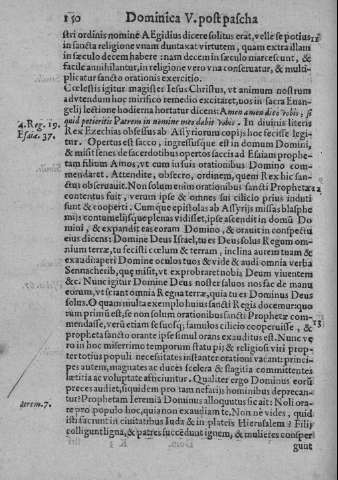 150 Dominica V. post pascha
stri ordinis nomine AEgidius dicere solitus erat, velle se potius 11
in sancta religione vnam duntaxat virtutem, quam extra illam
in sæculo decem habere: nam decem in sæculo marcescunt, &
facile annihilantur, in religione vero vna conseruatur, & multi-
plicatur sancto orationis exercitio.
Cœlestis igitur magister Iesus Christus, vt animum nostrum
ad vtendum hoc mirifico remedio excitaret, nos in sacra Euan-
gelij lectione hodierna hortatur dicens: Amen amen dico vobis, si
4. Reg. 19. quid petieritis Patrem in nomine meo dabit vobis. In diuinis literis
Esaiæ. 37. Rex Ezechias obsessus ab Assyriorum copijs hoc fecisse legi-
tur. Opertus est sacco, ingressusque est in domum Domini,
& misit senes de sacerdotibus opertos saccis ad Esaiam prophe-
tam filium Amos, vt eum in suis orationibus Domino com-
mendaret. Attendite, obsecro, ordinem, quem Rex hic san-
ctus obseruauit. Non solum enim orationibus sancti Prophetæ 12
contentus fuit, verum ipse & omnes sui cilicio prius induti
sunt & cooperti. Cum que epistolas ab Assyrijs missas blasphe
mijs contumelijsque plenas vidisset, ipse ascendit in domũ Do
mini, & expandit eas coram Domino, & orauit in conspectu
eius dicens: Domine Deus Israel, tu es Deus solus Regum om-
nium terræ, tu fecisti cœlum & terram, inclina aurem tuam &
exaudi aperi Domine oculos tuos & vide & audi omnia verba
Sennacherib, que misit, vt exprobraret nobis Deum viuentem
&c. Nunc igitur Domine Deus noster saluos nos fac de manu
eorum, vt sciant omnia Regna terræ, quia tu es Dominus Deus
solus. O quam multa exemplo huius sancti Regis docemur: quo
rum primũ est, se non solum orationibus sancti Prophetæ com-
mendasse, verũ etiam se suosq; famulos cilicio cooperuisse, & 13
propheta sancto orante ipse simul orans exauditus est. Nunc ve
ro in hoc miserrimo temporum statu pij & religiosi viri prop-
ter totius populi necessitates instanter orationi vacant: princi-
pes autem, magnates ac duces scelera & flagitia committentes
lætitiæ ac voluptate afficiuntur. Qualiter ergo Dominus eorũ
preces audiet, siquidem pro tam nefarijs hominibus deprecan-
Ierem. 7. tur? Prophetam Ieremiã Dominus alloquutus sic ait: Noli ora-
re pro populo hoc, quia non exaudiam te. Non nè vides, quid
isti faciunt in ciuitatibus Iuda & in plateis Hierusalem? Filij
colligunt ligna, & patres succendunt ignem, & mulieres consper
K 3 gunt